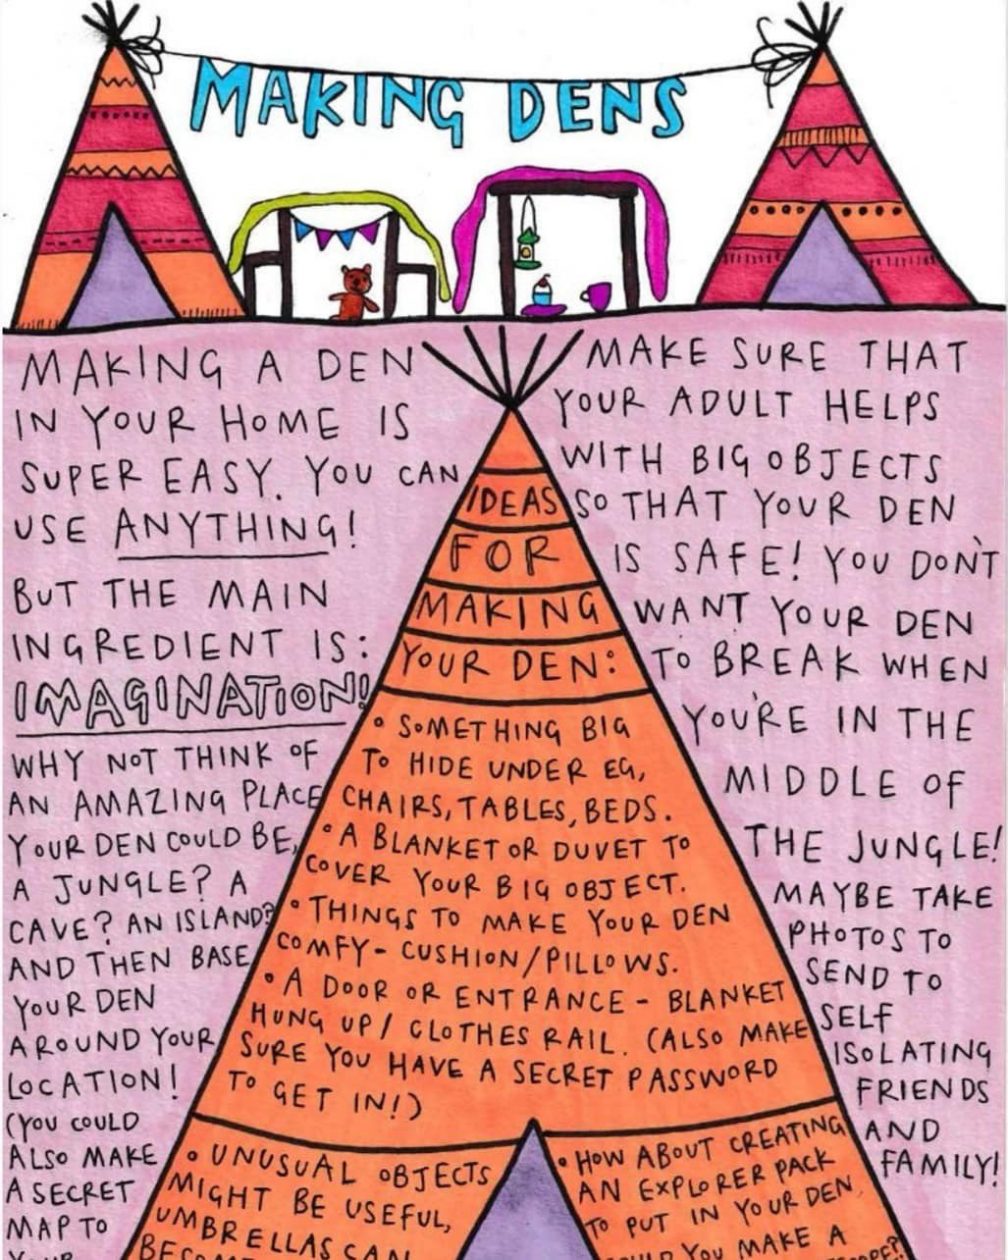 MAKING DENS
MAKING A DEN
IN YOUR HOME IS
SUPER EASY. YOU CAN
USE ANYTHING!
BUT THE MAIN
INGREDIENT IS:
IMAGINATION!
WHY NOT THINK OF
AN AMAZING PLACE
YOUR DEN COULD BE,
A JUNGLE? A
CAVE? AN ISLAND?
AND THEN BASE
YOUR DEN
AROUND YOUR
LOCATION!
(YOU COULD
ALSO MAKE
A SECRET
MAP TO
IDEAS
FOR
MAKING
YOUR DEN:
• SOMETHING BIG
TO HIDE UNDER EG,
CHAIRS, TABLES, BEDS.
• A BLANKET OR DUVET TO
COVER YOUR BIG OBJECT.
• THINGS TO MAKE YOUR DEN
COMFY - CUSHION/PILLOWS.
• A DOOR OR ENTRANCE - BLANKET
HUNG UP/ CLOTHES RAIL. (ALSO MAKE
SURE YOU HAVE A SECRET PASSWORD
TO GET IN!)
• UNUSUAL OBJECTS
MIGHT BE USEFUL,
UMBRELLAS CAN
• HOW ABOUT CREATING
AN EXPLORER PACK
TO PUT IN YOUR DEN
YOU MAKE A
MAKE SURE THAT
YOUR ADULT HELPS
WITH BIG OBJECTS
SO THAT YOUR DEN
IS SAFE! YOU DON'T
WANT YOUR DEN
TO BREAK WHEN
YOU'RE IN THE
MIDDLE OF
THE JUNGLE!
MAYBE TAKE
PHOTOS TO
SEND TO
SELF
ISOLATING
FRIENDS
AND
FAMILY!